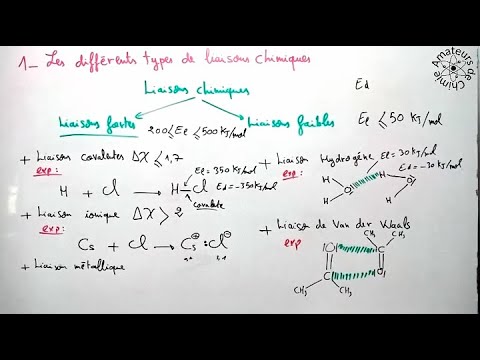 1_ Les différents types de liaisons chimiques
Amateurs de Chimie
Liaisons chimiques
Ed
Liaisons fortes
200 ≤ El ≤ 500 KJ/mol
Liaisons faibles
El ≤ 50 KJ/mol
+ Liaison covalentes ΔX ≤ 1,7
exp:
H + Cl → H–Cl
El = 350 KJ/mol
Ed = -350 KJ/mol
covalente
+ Liaison ionique ΔX > 2
exp:
Cs + Cl → Cs⊕ :Cl⊖
+ Liaison métallique
+ Liaison Hydrogène
El = 30 KJ/mol
Ed = -30 KJ/mol
exp:
H H
H O H O
+ Liaison de Van der Waals
exp
CH3 CH3
|O| C
C O
CH3 CH3